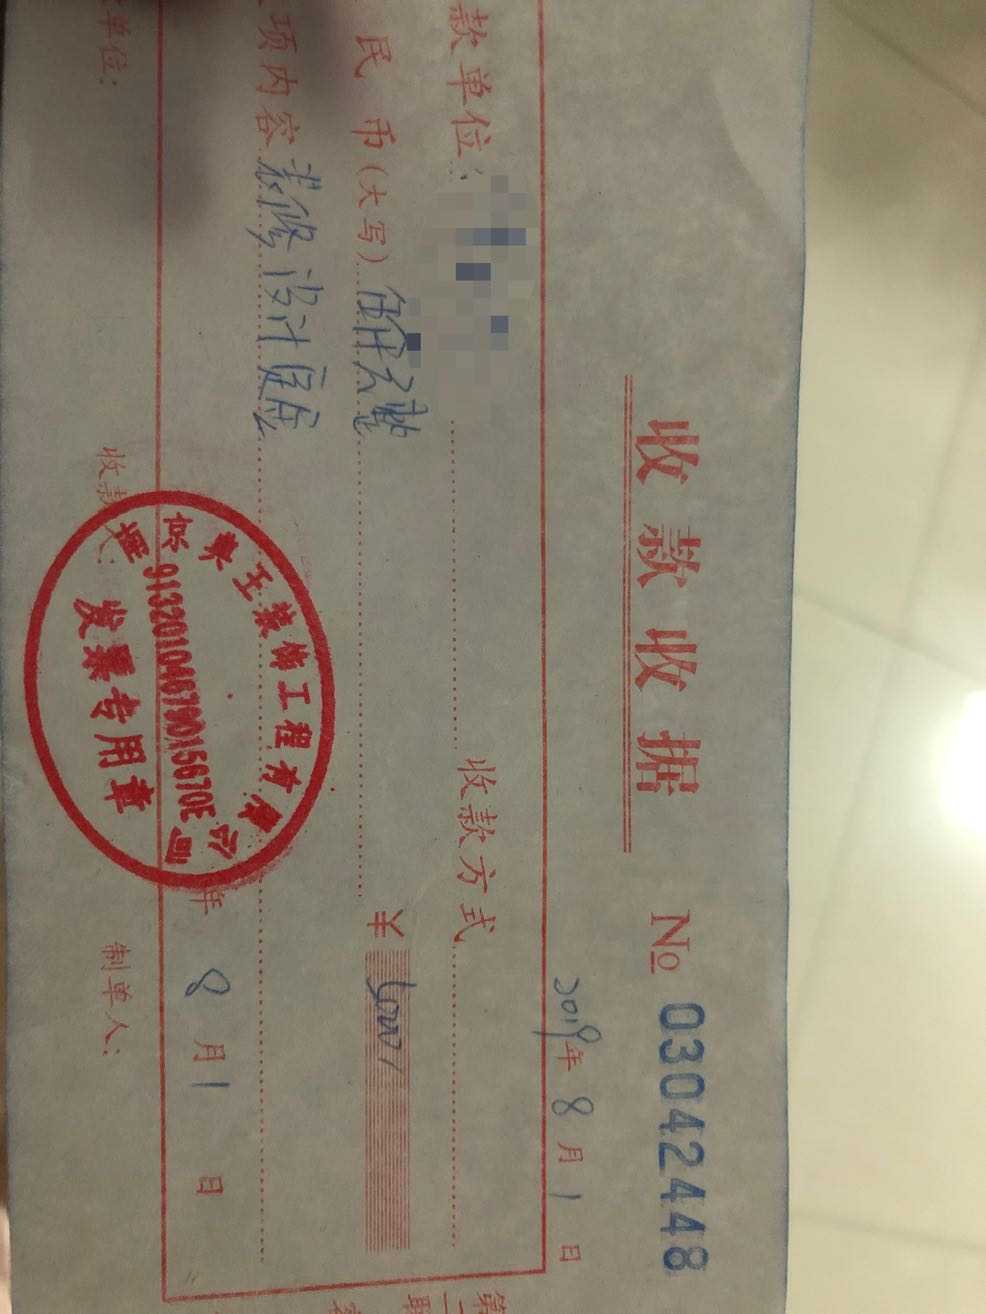 收款收据 № 03042448
2019年8月1日
款单位: 收款方式
民币(大写)伍仟元整 ¥5000/
项内容 装修设计定金
年8月1日
单位: 收款 制单人:
美王装饰工程有限公司
发票专用章
第二联